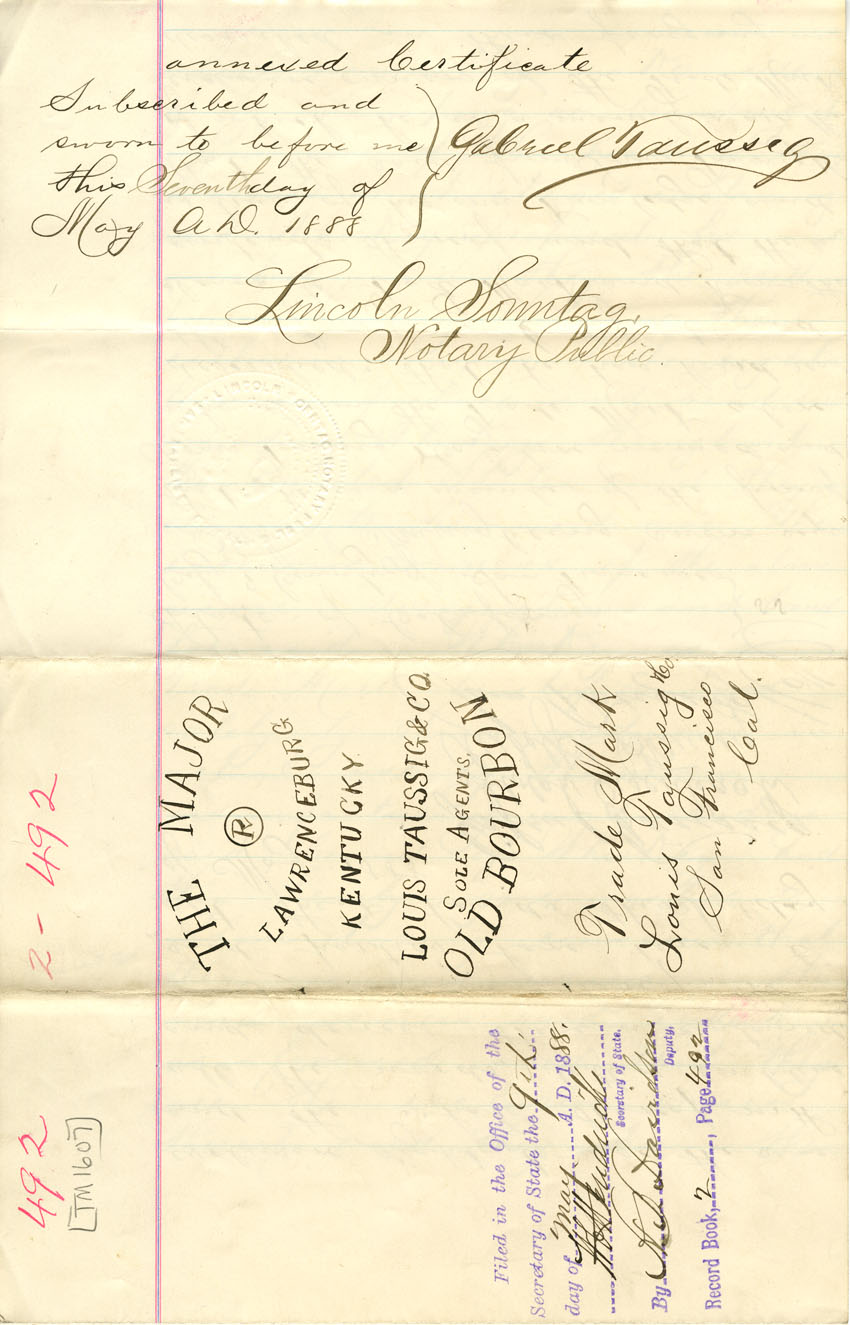 annexed Certificate
Subscribed and
sworn to before me
this Seventh day of
May A.D. 1888
Gabriel Taussig
Lincoln Sonntag,
Notary Public.
22
THE MAJOR
R
LAWRENCEBURG
KENTUCKY
LOUIS TAUSSIG & CO.
SOLE AGENTS.
OLD BOURBON
Trade Mark
Louis Taussig & Co
San Francisco
Cal.
2-492
Filed in the Office of the
Secretary of State the 9th
day of May A. D. 1888.
Secretary of State.
By
Deputy.
Record Book, 2, Page 492
492
TM1607